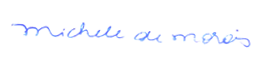 michele de morais